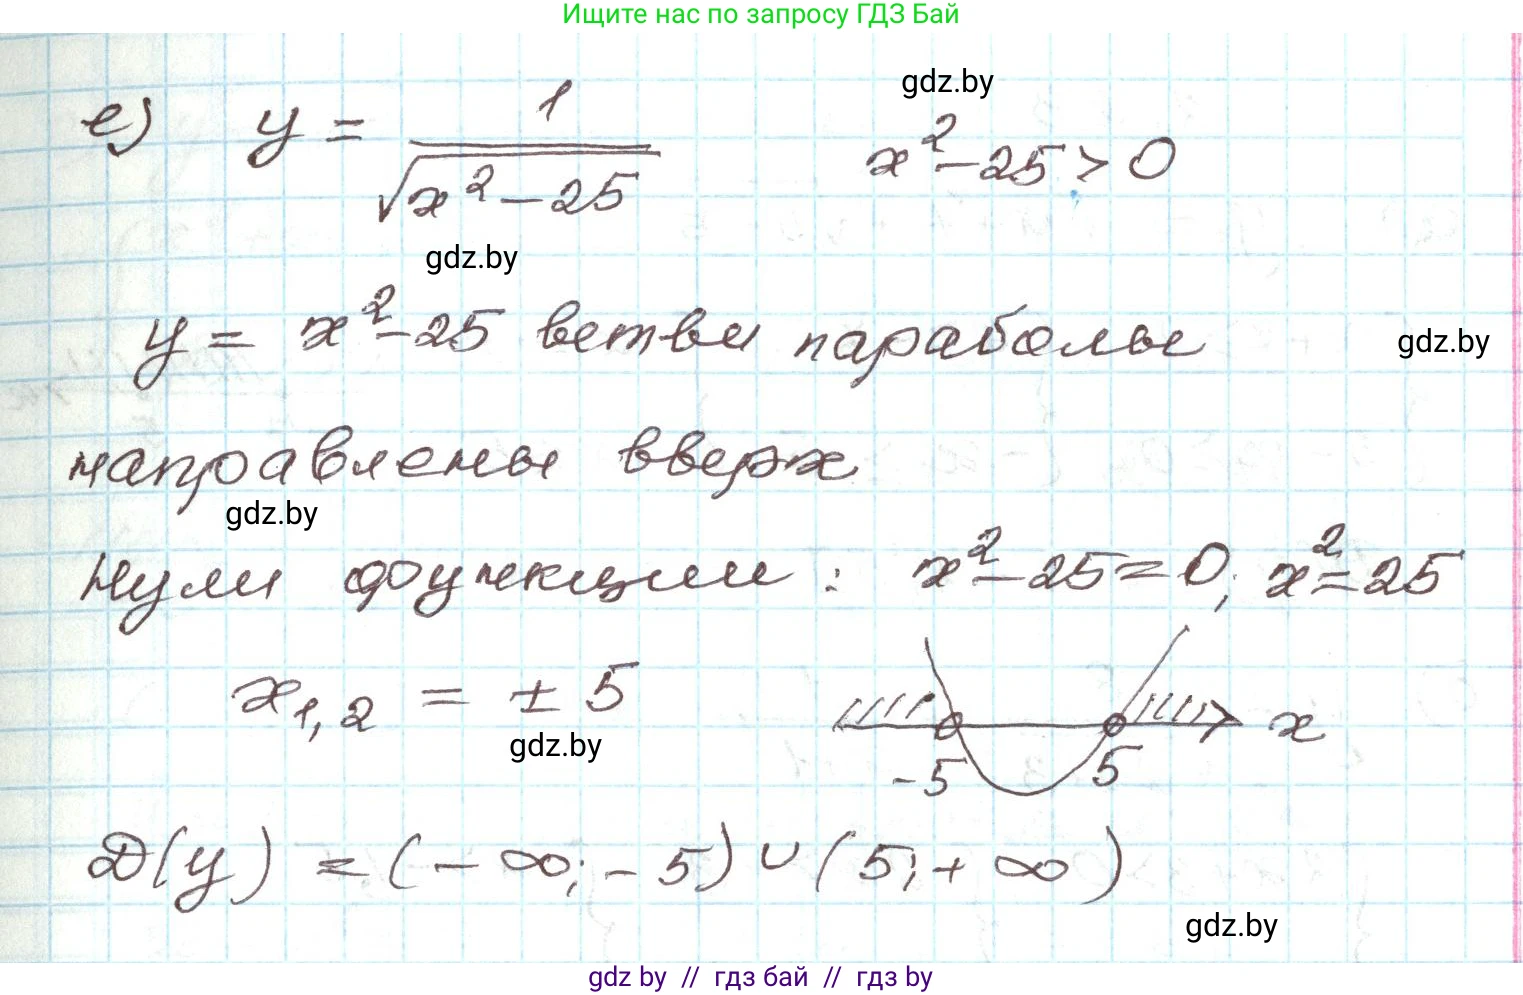 Ищите нас по запросу ГДЗ Бай
gdz.by
е) y = 1/√(x² − 25)     x² − 25 > 0
gdz.by
y = x² − 25 ветви параболы
gdz.by
направлены вверх
gdz.by
Нули функции : x² − 25 = 0; x² = 25
x₁,₂ = ± 5
gdz.by
-5 5 x
D(y) = (− ∞; − 5) ∪ (5; + ∞)
gdz.by
gdz by // гдз бай // гдз by